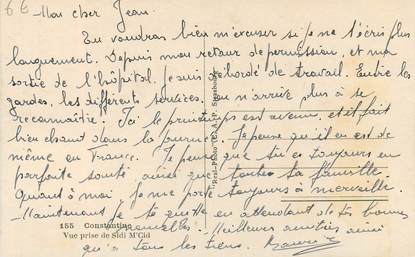 66
Mon cher Jean.
Tu voudras bien m'excuser si je ne t'écris plus
longuement. Depuis mon retour de permission, et ma
sortie de l'hôpital. Je suis débordé de travail. Entre les
gardes, les différents services. on n'arrive plus à se
reconnaître. Ici le printemps est avenu, et il fait
bien chaud dans la journée. Je pense qu'il en est de
même en France. Je pense que tu es toujours en
parfaite santé, ainsi que toute ta famille.
Quant à moi, je me porte toujours à merveille.
Maintenant je te quitte en attendant de tes bonnes
nouvelles. Meilleures amitiés ainsi
qu'à tous les tiens. Maurice
155 Constantine
Vue prise de Sidi M'Cid
"Real-Photo" C. A. P. Strasbourg